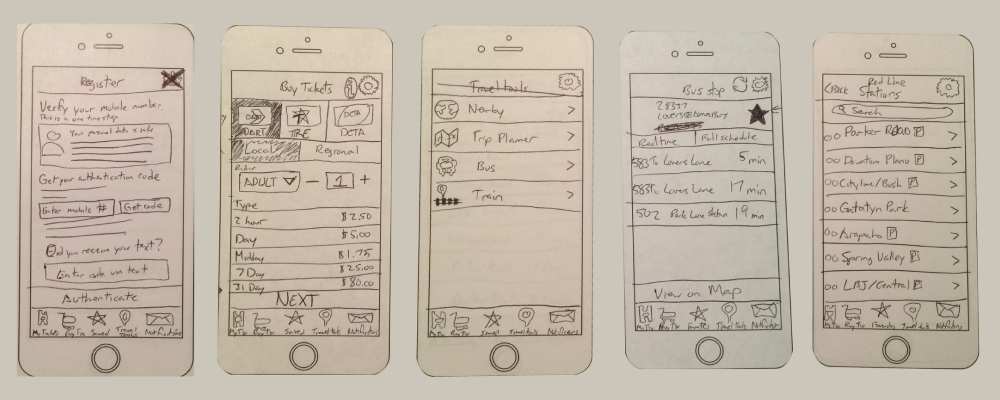 Register
Verify your mobile number
This is a one time step
Your personal data is safe
Get your authentication code
Enter mobile #
Get code
Did you receive your text?
Enter code via text
Authenticate
My Tickets Buy Tix Saved Travel Tools Notifications
Buy Tickets
DART
DART TRE DCTA
Local Regional
Rider
ADULT - 1 +
Type
2 hour $2.50
Day $5.00
Midday $1.75
7 Day $25.00
31 Day $80.00
NEXT
My Tix Buy Tix Saved Travel tools
Travel tools
Nearby >
Trip Planner >
Bus >
Train >
My Tix Buy Tix Saved Travel tools
Bus stop
28337
Realtime Full schedule
583 To Lovers Lane 5 min
583 To Lovers Lane 17 min
502 Park Lane Station 19 min
View on Map
My Tix Buy Tix Favorites Travel tools
<Back Red Line
Stations
Search
Parker Road P >
Downtown Plano P >
Cityline/Bush P >
Galatyn Park >
Arapaho P >
Spring Valley P >
LBJ/Central P >
My Tix Buy Tix Favorites Travel tools